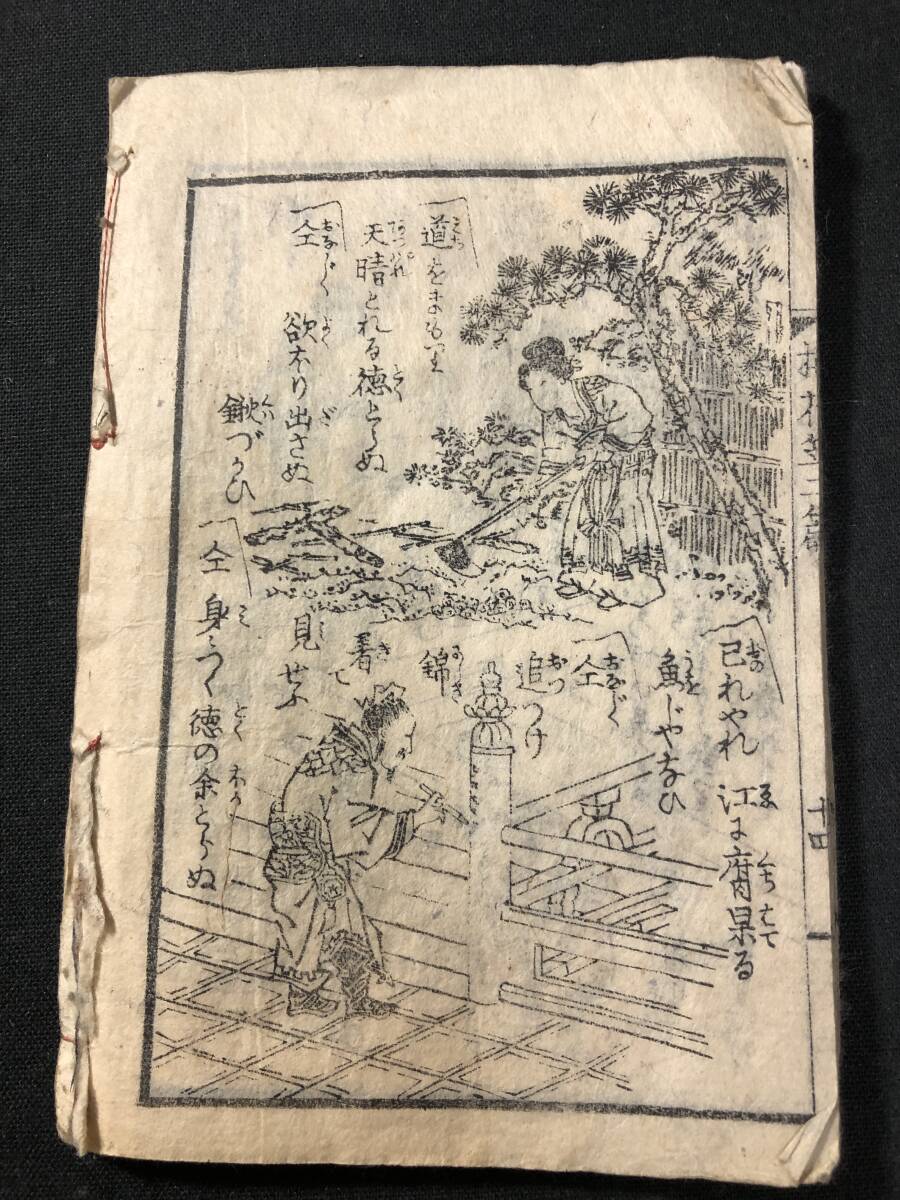 道をまもり
天晴とれる徳とらぬ
仝
欲ほり出さぬ
鍬づかひ
已れやれ 江に腐果る
魚じやなひ
仝
追つけ
錦
着て
見せふ
仝 身につく徳の余とらぬ
十四